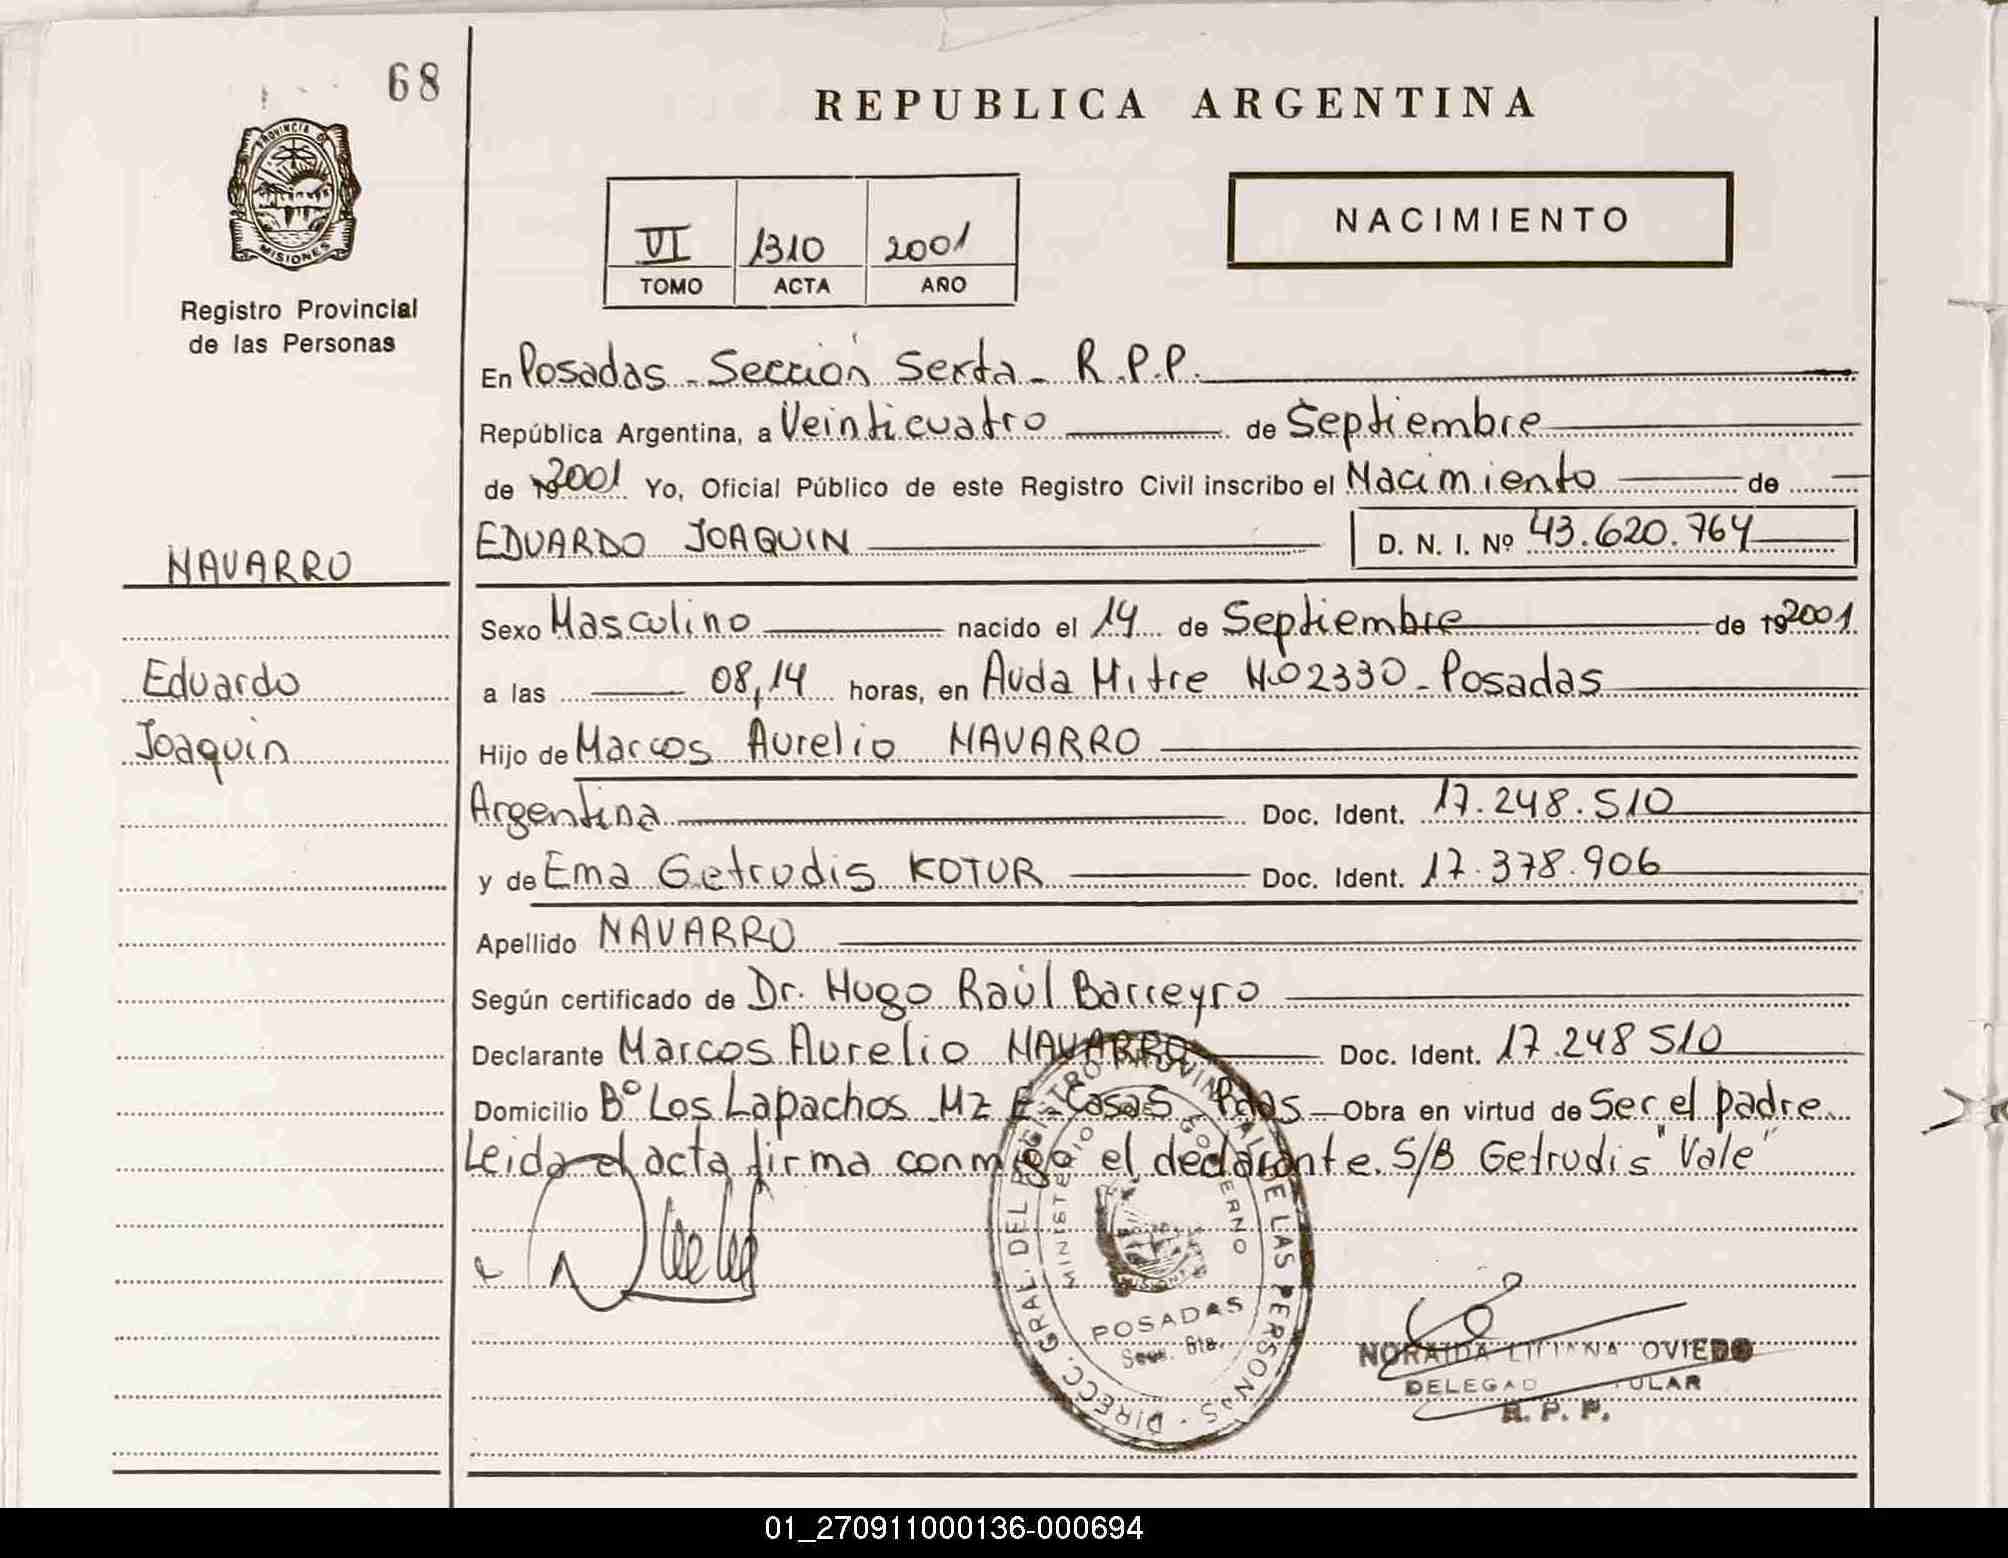 68
REPUBLICA ARGENTINA
PROVINCIA DE
MISIONES
Registro Provincial
de las Personas
NACIMIENTO
VI 1310 2001
TOMO ACTA AÑO
En Posadas - Sección Sexta - R.P.P.
República Argentina, a Veinticuatro de Septiembre
de 192001 Yo, Oficial Público de este Registro Civil inscribo el Nacimiento de
NAVARRO
EDUARDO JOAQUIN D. N. I. Nº 43.620.764
Sexo Masculino nacido el 14 de Septiembre de 192001
Eduardo
a las 08,14 horas, en Avda Mitre No 2330 - Posadas
Joaquin
Hijo de Marcos Aurelio NAVARRO
Argentina Doc. Ident. 17.248.510
y de Ema Getrudis KOTUR Doc. Ident. 17.378.906
Apellido NAVARRO
Según certificado de Dr. Hugo Raúl Barreyro
Declarante Marcos Aurelio NAVARRO Doc. Ident. 17.248 510
Domicilio Bº Los Lapachos Mz E - Casa 5 - Pdas - Obra en virtud de Ser el padre
Leida el acta firma conmigo el declarante. S/B Getrudis "Vale"
DIRECC. GRAL. DEL REGISTRO PROVINCIAL DE LAS PERSONAS
MINISTERIO GOBIERNO
MISIONES
POSADAS
Secc. 6ta.
NORAIDA LILIANA OVIEDO
R. P. P.
01_270911000136-000694